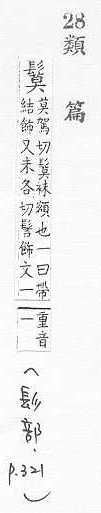 28 類 篇
鬕 莫駕切鬕袜額也一曰帶
結飾又末各切髻飾文一
重音
一
(髟部, p.321)